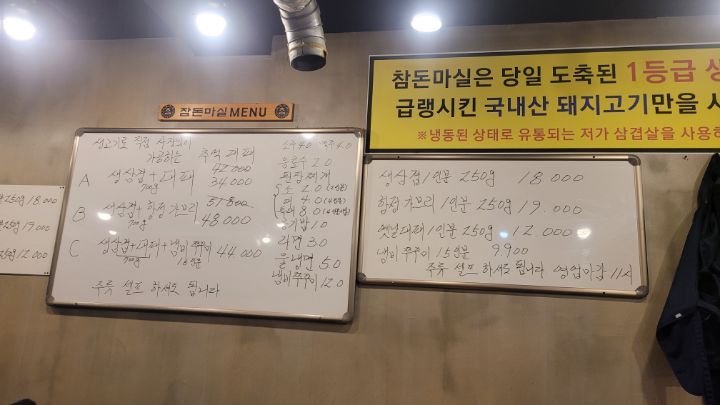 참돈마실은 당일 도축된 1등급
급랭시킨 국내산 돼지고기만을
※냉동된 상태로 유통되는 저가 삼겹살을 사용하
참돈마실 MENU
생고기로 직접
가공하는 추억 대패
A 생삼겹+대패 42.000
34.000
B 생삼겹+항정 가브리 51.800
48.000
C 생삼겹+대패+냄비쭈꾸미 44.000
주류 셀프 하셔도 됩니다
음료수 2.0
된장찌개
소 2.0
대 8.0
공기밥 1.0
라면 3.0
물냉면 5.0
냄비쭈꾸미 12.0
생삼겹 1인분 250g 18.000
항정 가브리 1인분 250g 19.000
옛날대패 1인분 250g 12.000
냄비 쭈꾸미 1.5인분 9.900
주류 셀프 하셔도 됩니다 영업마감 11시
18.000
19.000
12.000